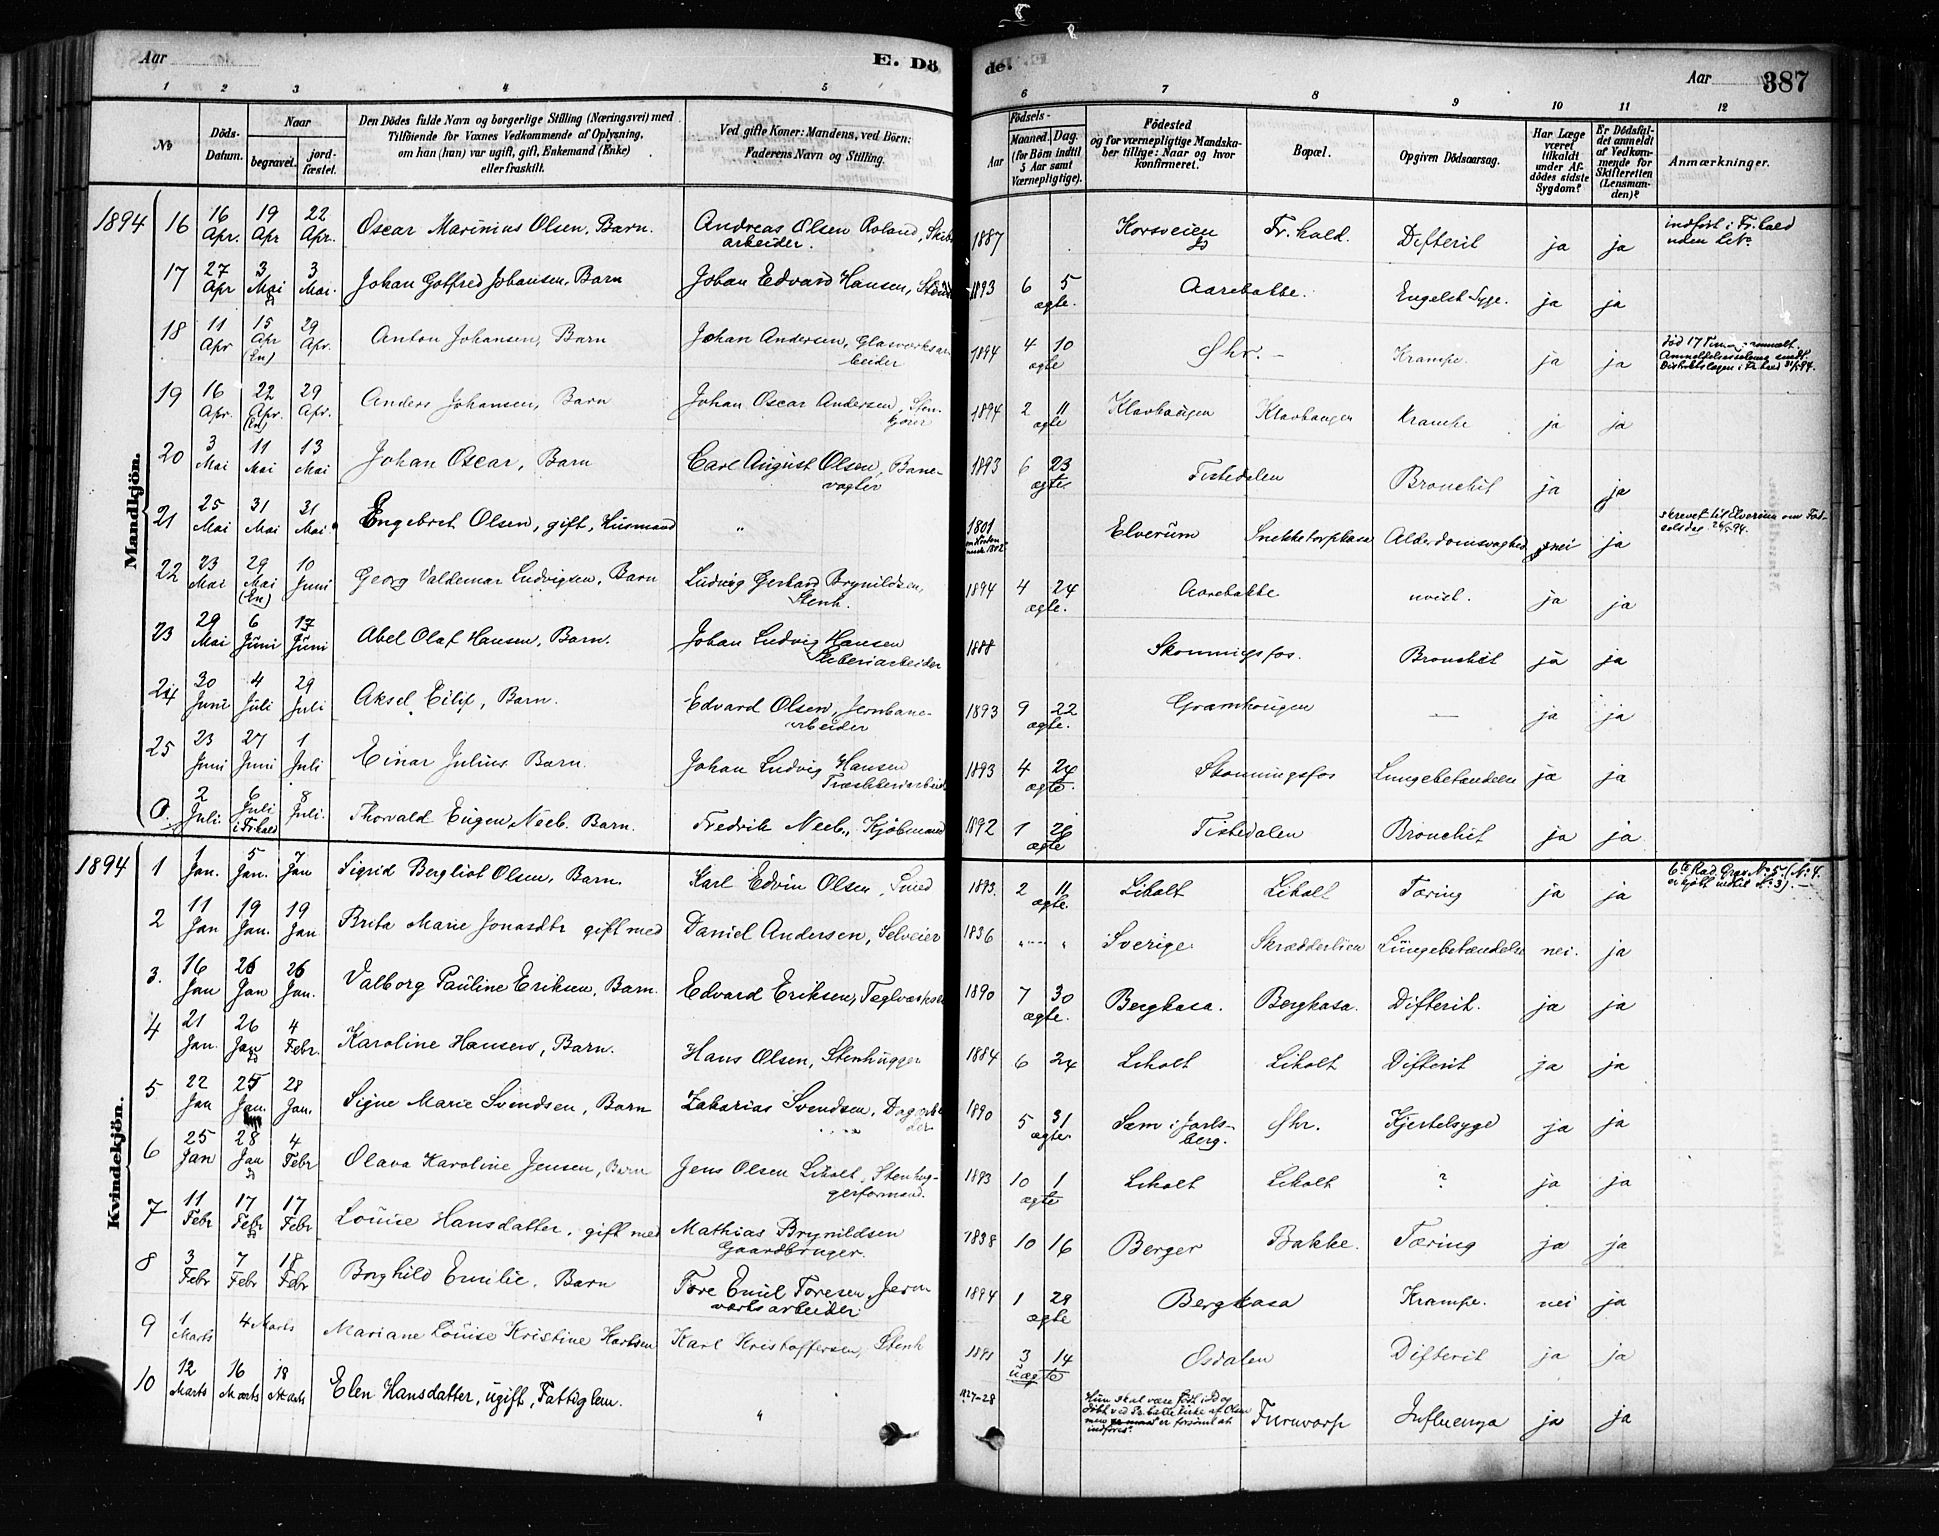 Aar
E. Dö
de.
Aar
387
1 2 3 4 5 6 7 8 9 10 11 12
No
Döds-
Datum.
Naar
begravet.
jord-
fæstet.
Den Dödes fulde Navn og borgerlige Stilling (Næringsvei) med
Tilföiende for Voxnes Vedkommende af Oplysning,
om han (hun) var ugift, gift, Enkemand (Enke)
eller fraskilt.
Ved gifte Koner: Mandens, ved Börn:
Faderens Navn og Stilling.
Födsels-
Aar
Maaned. Dag.
(for Börn indtil
5 Aar samt
Værnepligtige).
Födested
og for værnepligtige Mandska-
ber tillige: Naar og hvor
konfirmeret.
Bopæl.
Opgiven Dödsaarsag.
Har Læge
været
tilkaldt
under Af-
dödes sidste
Sygdom?
Er Dödsfal-
det anmeldt
af Vedkom-
mende for
Skifteretten
(Lensman-
den)?
Anmærkninger.
Mandkjön.
1894 16 16 Apr. 19 Apr 22 Apr. Oscar Marinius Olsen, Barn. Andreas Olsen Roland, Skibs
arbeider. 1887 Korsveien Fr.hald. Difterit ja ja indført i Fr.hald
uden
17 27 Apr 3 Mai 3 Mai. Johan Gotfred Johansen, Barn Johan Edvard Hansen, 1893 6 5 Aarebakke. Engelsk Syge. ja ja
ægte.
18 11 Apr 15 Apr 29 Apr. Anton Johansen, Barn Johan Andersen, Glasværksar
beider 1894 4 10 Øhr. - Krampe. ja ja
ægte
19 16 Apr. 22 Apr. 29 Apr. Anders Johansen, Barn Johan Oscar Andersen, Sten-
kjører 1894 2 11 Klavhaugen Klavhaugen Krampe ja ja
ægte
20 3 Mai 11 Mai 13 Mai Johan Oscar, Barn Carl August Olsen, Bane-
vogter 1893 6 23 Tistedalen Bronchit ja ja
ægte
21 25 Mai 31 Mai 31 Mai Engebret Olsen, gift, Husmand " 1801 Elverum Snekketorpkasa Alderdomsvaghed nei ja skrevet til Elverum om Fød-
selsdag
22 23 Mai 29 Mai 10 Juni Georg Valdemar Ludvigsen, Barn Ludvig Gerhard Brynildsen,
Stenh. 1894 4 24 Aarebakke uvist. ja ja
ægte.
23 29 Mai 6 Juni 17 Juni Abel Olaf Hansen, Barn. Johan Ludvig Hansen
Sliberiarbeider 1888 Skonningsfos. Bronchit ja ja
24 30 Juni 4 Juli 29 Juli Aksel Eilif, Barn. Edvard Olsen, Jernbane-
arbeider 1893 9 22 Gramhougen — ja ja
ægte.
25 23 Juni 27 Juni 1 Juli Einar Julius Barn. Johan Ludvig Hansen
Træsliberiarbeid 1893 4 24 Skonningsfos Lungebetændelse ja ja
ægte.
0. 2 Juli. 6 Juli i Fr.hald 8 Juli. Thorvald Eugen Neeb. Barn. Fredrik Neeb, Kjøbmand 1892 1 26 Tistedalen Bronchit ja ja
ægte
Kvindekjön.
1894 1 1 Jan. 5 Jan. 7 Jan Sigrid Bergliot Olsen, Barn. Karl Edvin Olsen, Smed 1893. 2 11 Liholt Liholt Tæring ja ja
ægte.
2 11 Jan 19 Jan. 19 Jan Brita Marie Jonasdtr gift med Daniel Andersen, Selveier 1836 " " Sverige Skrædderlien Lungebetændelse nei. ja
3. 16 Jan 26 Jan 26 Jan. Valborg Pauline Eriksen, Barn. Edvard Eriksen, 1890 7 30 Bergkasa. Bergkasa. Difterit. ja ja
ægte.
4 21 Jan. 26 Jan 4 Febr. Karoline Hansen, Barn. Hans Olsen, Stenhugger 1884 6 24 Liholt Liholt Difterit ja ja
5 22 Jan 25 Jan. 28 Jan. Signe Marie Svendsen, Barn Zakarias Svendsen, Dagarbei
der 1890 5 31 Sem i Jarls-
berg. Øhr. Kjertelsyge ja ja
ægte
6 25 Jan 28 Jan 4 Febr Olava Karoline Jensen, Barn Jens Olsen Liholt, Stenhug-
gerformand. 1893 10 1 Liholt Liholt ? ja ja
ægte
7 11 Febr 17 Febr 17 Febr Louise Hansdatter, gift med Mathias Brynildsen
Gaardbruger. 1838 10 16 Berger Bakke. Tæring ja ja
8 3 Febr 7 Febr 18 Febr Borghild Emilie. Barn Tore Emil Toresen, Jern
værksarbeider 1894 1 29 Bergkasa Krampe. nei ja
ægte
9 1 Marts 4 Marts Mariane Louise Kristine Karlsen Karl Kristoffersen, Stenh 3 14 Osdalen Difterit ja ja
uægte
10 12 Marts 16 Marts 18 Marts Elen Hansdatter, ugift, Fattiglem. " 1827-28 Hun skal være født i Id og
døbt ved kirke af Olsen
men er forsømt at
indføres. Furutorp Influenza ja ja